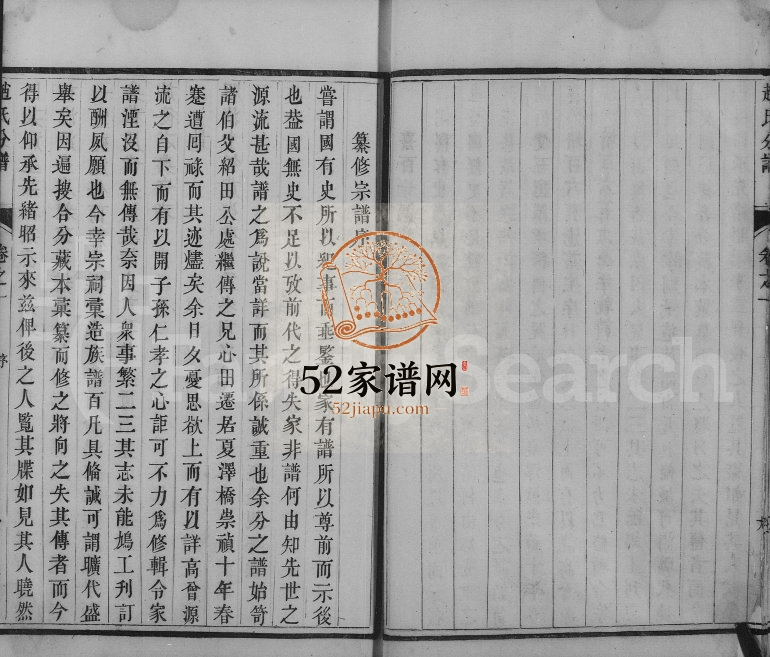 纂修宗譜序
嘗謂國有史所以 事而垂鑒 家有譜所以尊前而示後
也葢國無史不足以攷前代之得失家非譜何由知先世之
源流甚哉譜之爲說當詳而其所係誠重也余分之譜始苛
諸伯父紹田公處繼傳之兄心田遷居夏澤橋崇禎十年春
蹇遭囘祿而其迹燼矣余日夂憂思欲上而有以詳高曾源
流之自下而有以開子孫仁孝之心詎可不力爲修輯令家
譜湮沒而無傳哉奈因人衆事繁二三其志未能鳩工刋訂
以酬夙願也今幸宗祠彙造族譜百凡具俻誠可謂曠代盛
舉矣因遍搜合分藏本彙纂而修之將向之失其傳者而今
得以仰承先緒昭示來茲俾後之人覧其牒如見其人曉然
趙氏分譜
卷之一
序
52家谱网
52jiapu.com
Search